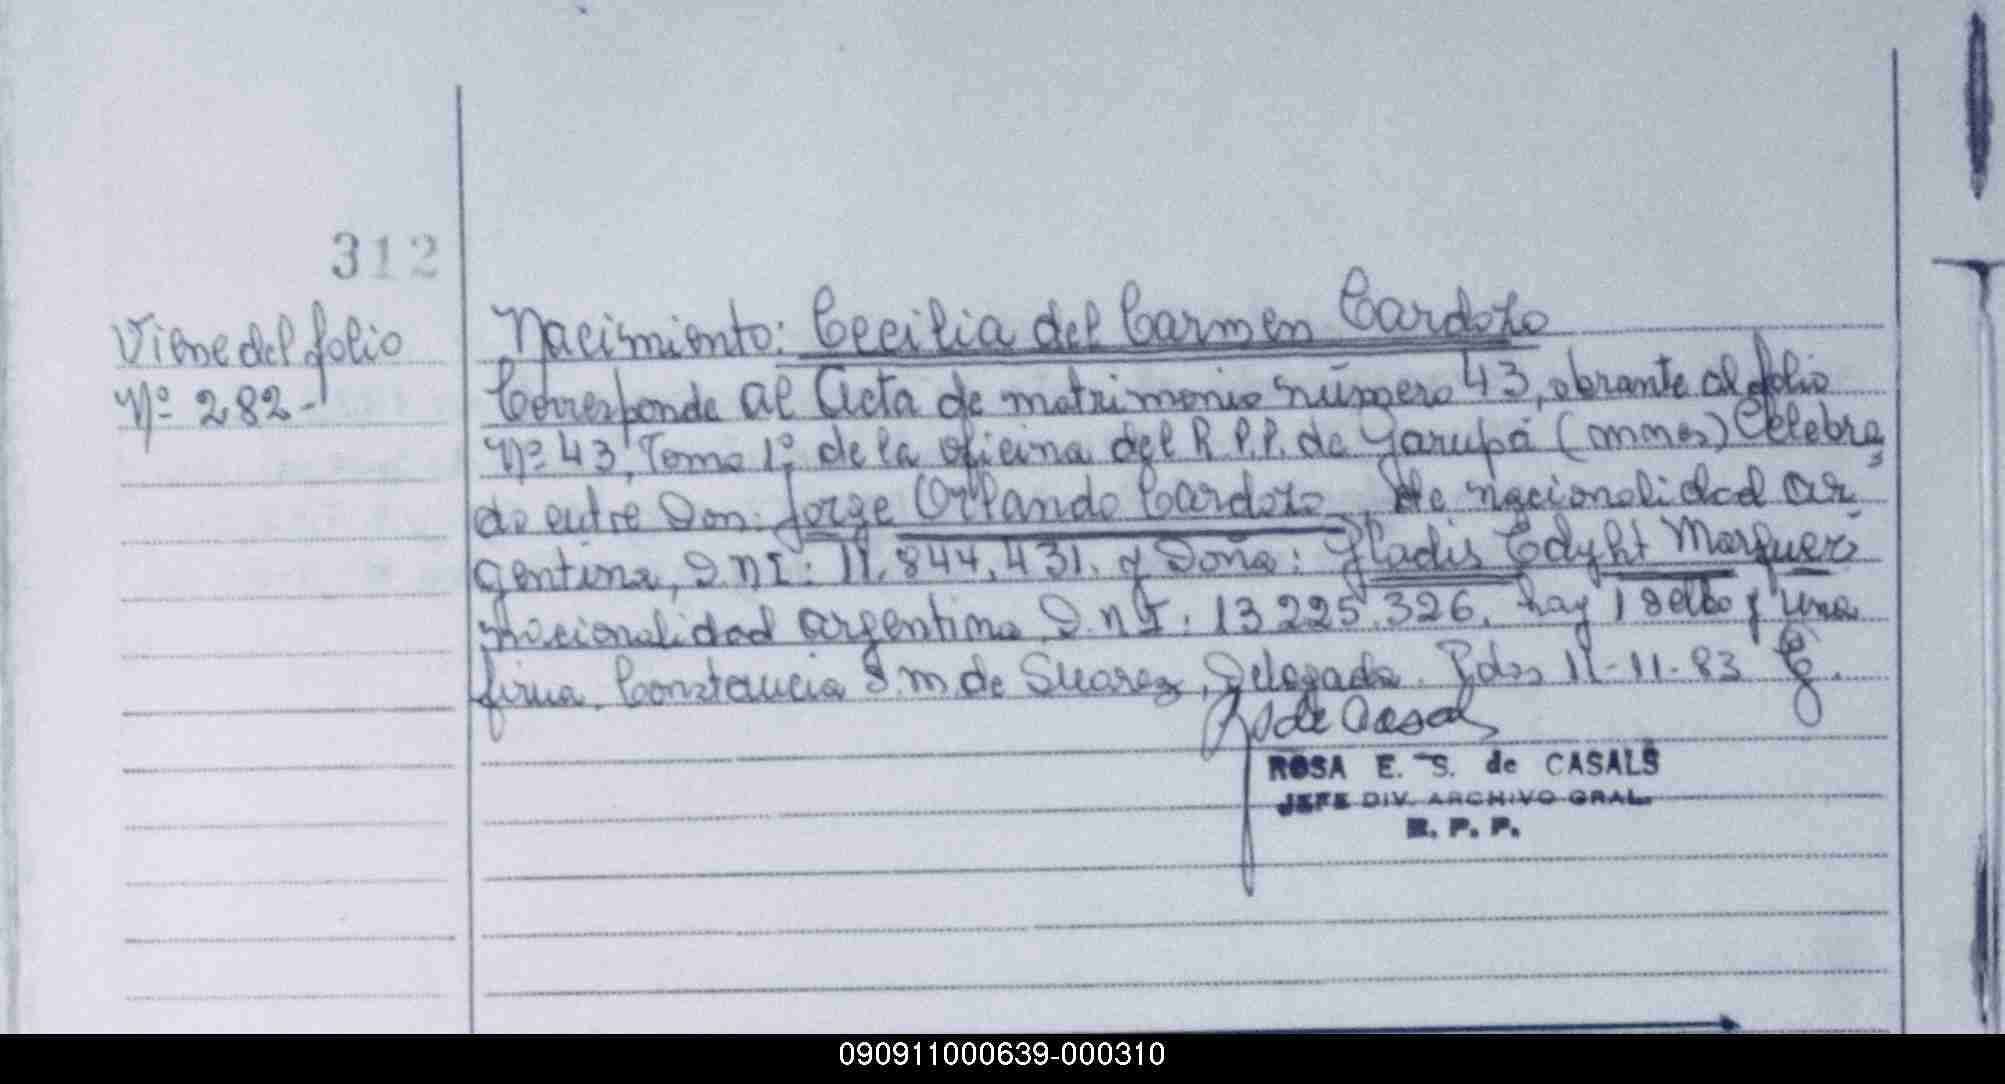 312
Viene del folio
Nº 282-
Nacimiento: Cecilia del Carmen Cardozo
Corresponde al Acta de matrimonio número 43, obrante al folio
Nº 43, Tomo 1º de la oficina del R.P.P. de Garupá (mnes) Celebra
do entre Don: Jorge Orlando Cardozo, de nacionalidad ar
gentina, D.N.I: 11.844.431. y Doña: Gladis Edyht
nacionalidad argentina D.N.I. 13.225.326. hay 1 sello y una
firma. Constancia S.M. de Suarez, Delegada. Pdas 11-11-83
ROSA E. S. de CASALS
JEFE DIV. ARCHIVO GRAL.
R. P. P.
090911000639-000310